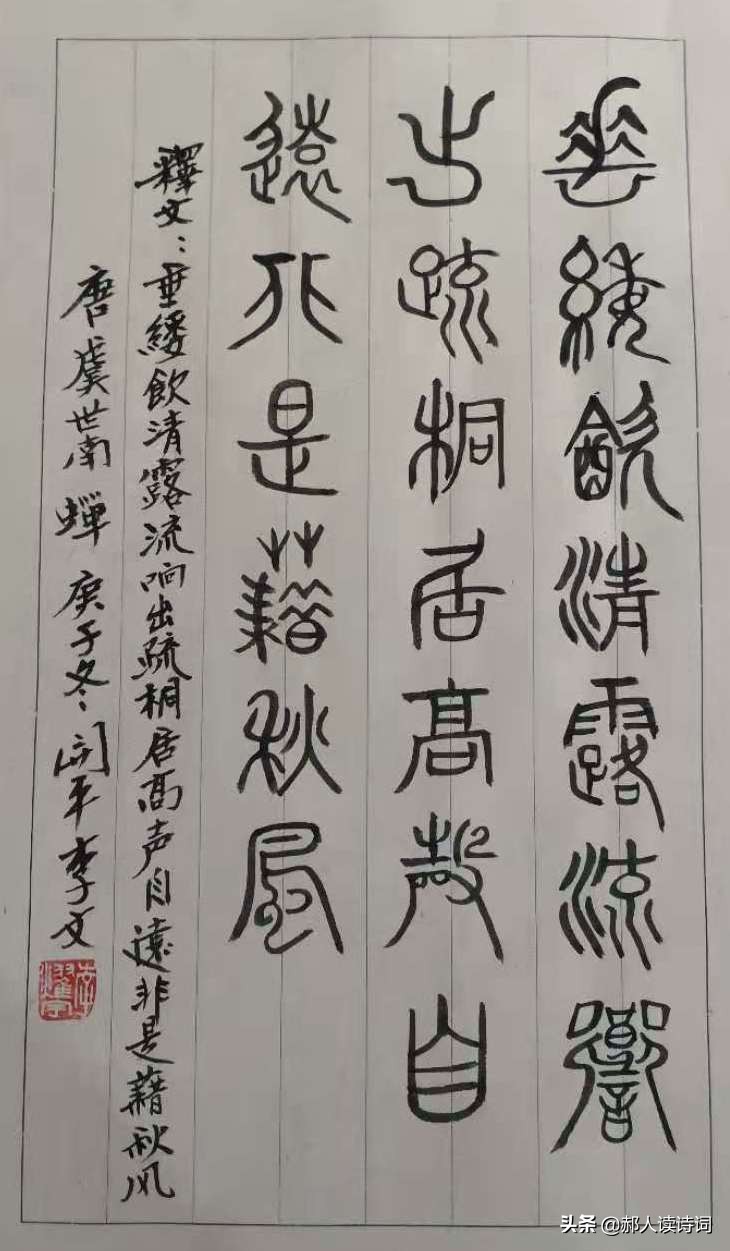 垂緌飲清露流響
出疏桐居高聲自
遠非是藉秋風
釋文：垂緌飲清露流响出疏桐居高声自遠非是藉秋风
唐虞世南蟬庚子冬、開平李文
头条 @郝人读诗词